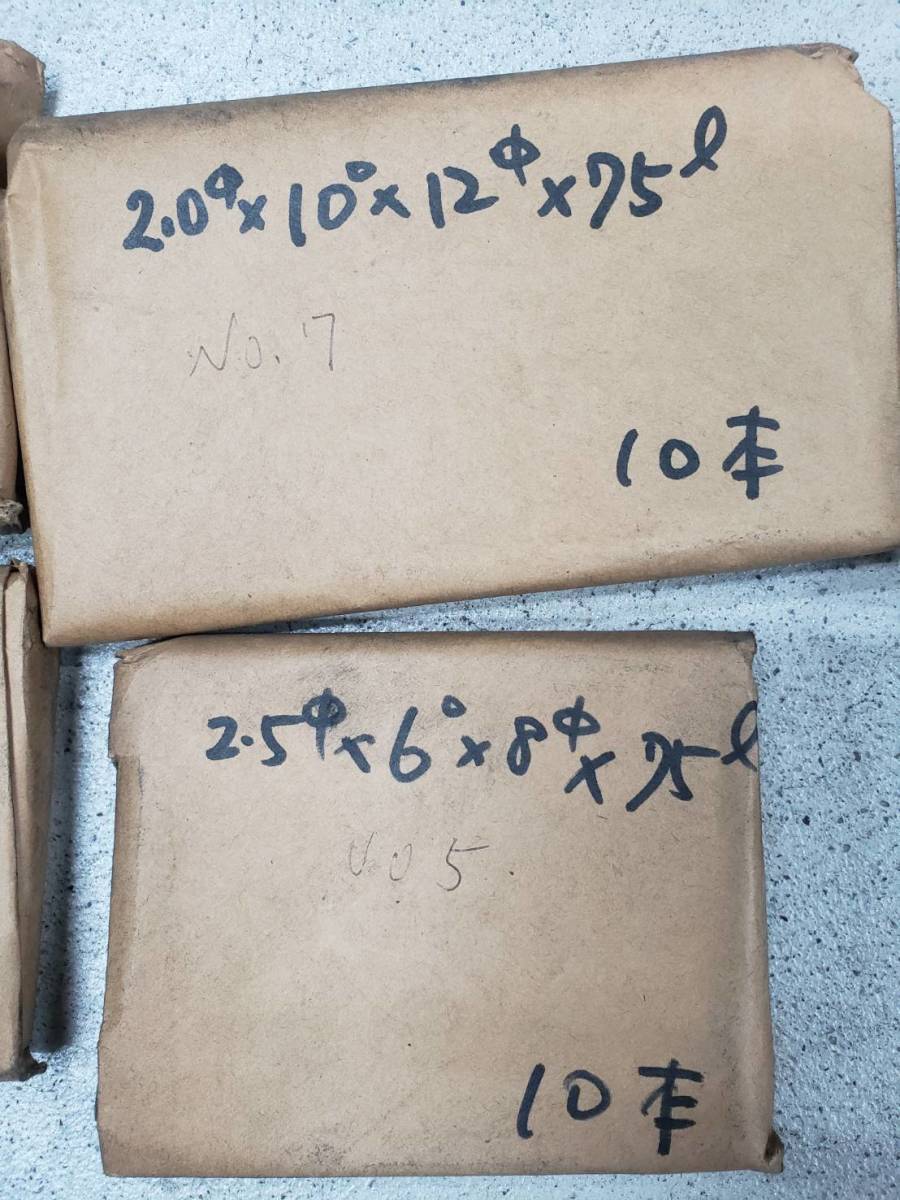 2.0φ×10°×12φ×75l
No.7
10本
2.5φ×6°×8φ×75l
No 5
10本